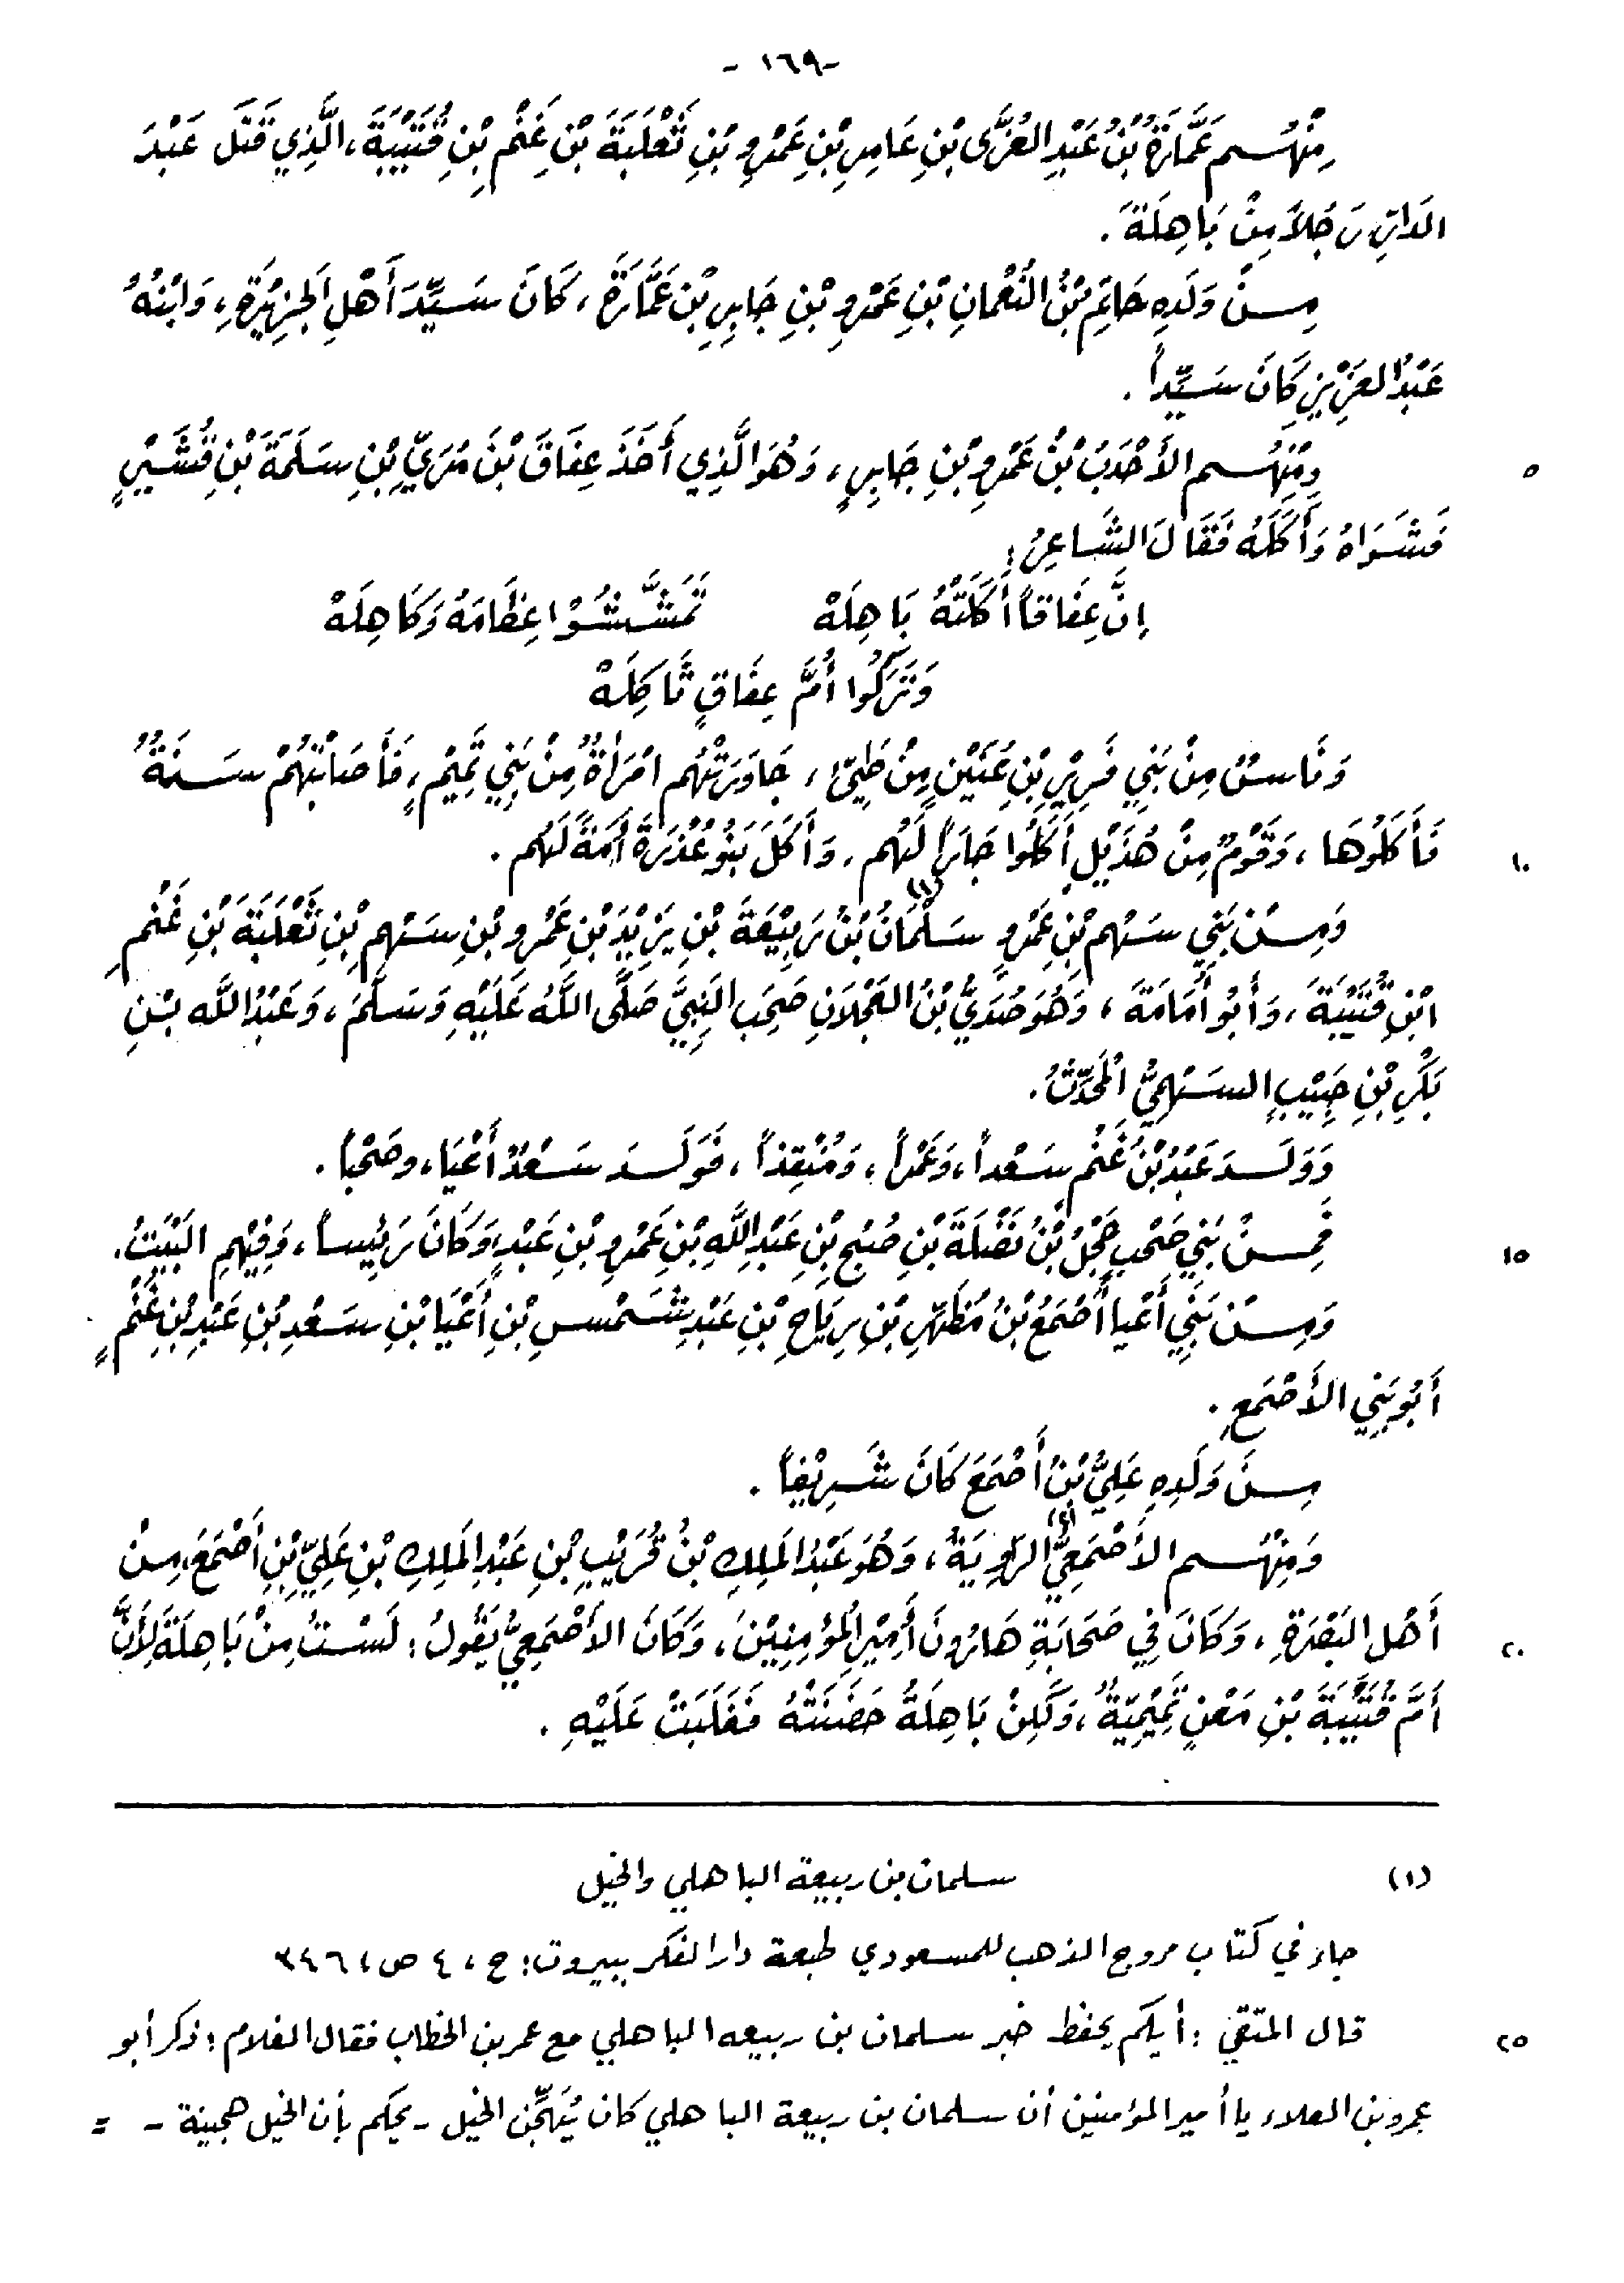 -١٦٩-
مِنْهُم عَمَّارَةُ بْنُ عَبْدِ العُزَّى بْنِ عَامِرِ بْنِ عَمْرِو بْنِ ثَعْلَبَةَ بْنِ غَنْمِ بْنِ قُتَيْبَةَ، الَّذِي قَتَل عَبْدَ
الدَارِ رَجُلاً مِنْ بَاهِلَةَ.
مِنْ وَلَدِهِ حَاتِمُ بْنُ النُّعْمَانِ بْنِ عَمْرِو بْنِ جَابِرِ بْنِ عَمَّارَةَ، كَانَ سَيِّدَ أَهْلِ الجَزِيْرَةِ، وَابْنُهُ
عَبْدُ العَزِيْزِ كَانَ سَيِّداً.
وَمِنْهُم الأَحْدَبُ بْنُ عَمْرِو بْنِ جَابِرٍ، وَهُوَ الَّذِي أَخَذَ عِفَاقَ بْنَ مُرَيِّ بْنِ سَلَمَةَ بْنِ قُشَيْرٍ
٥
فَشَوَاهُ وَأَكَلَهُ فَقَالَ الشَّاعِرُ:
إِنَّ عِفَاقاً أَكَلَتْهُ بَاهِلَهْ تَمَشَّشُوْا عِظَامَهُ وَكَاهِلَهْ
وَتَرَكُوا أُمَّ عِفَاقٍ ثَاكِلَهْ
وَنَاسٌ مِنْ بَنِي فَرِيْرِ بْنِ عُنَيْنٍ مِنْ طَيِّئ، جَاوَرَتْهُم امْرَأَةٌ مِنْ بَنِي تَمِيْمٍ، فَأَصَابَتْهُمْ سَنَةٌ
فَأَكَلُوْهَا، وَقَوْمٌ مِنْ هُذَيْلٍ أَكَلُوا جَاراً لَهُم، وَأَكَلَ بَنُو عُذْرَةَ أَمَةً لَهُم.
١٠
وَمِنْ بَنِي سَهْمِ بْنِ عَمْرٍو سَلْمَانُ (١) بْنُ رَبِيْعَةَ بْنِ يَزِيْدَ بْنِ عَمْرِو بْنِ سَهْمِ بْنِ ثَعْلَبَةَ بْنِ غَنْمِ
ابْنِ قُتَيْبَةَ، وَأَبُو أُمَامَةَ، وَهُوَ صُدَيُّ بْنُ العَجْلَانِ صَحِبَ النَّبِيَّ صَلَّى اللَّهُ عَلَيْهِ وَسَلَّمَ، وَعَبْدُ اللَّه بْنِ
بَكْرِ بْنِ حَبِيْبٍ السَهْمِيُّ المُحَدِّثُ.
وَوَلَدَ عَبْدُ بْنُ غَنْمٍ سَعْداً، وَعَمْراً، وَمُنْقِذاً، فَوَلَدَ سَعْدٌ أَعْيَا، وصَحْباً.
فَمِنْ بَنِي صَحْبٍ جَحْلُ بْنُ نَضْلَةَ بْنِ صُبْحِ بْنِ عَبْدِ اللَّهِ بْنِ عَمْرِو بْنِ عَبْدٍ، وَكَانَ رَئِيساً، وَفِيْهِم البَيْتُ.
١٥
وَمِنْ بَنِي أَعْيا أَصْمَعُ بْنُ مُظَهِّرِ بْنِ رِيَاحِ بْنِ عَبْدِ شَمْسِ بْنِ أَعْيَا بْنِ سَعْدِ بْنِ عَبْدِ بْنِ غَنْمٍ
أَبُو بَنِي الأَصْمَعِ.
مِنْ وَلَدِهِ عَلِيُّ بْنُ أَصْمَعَ كَانَ شَرِيْفاً.
وَمِنْهُم الأَصْمَعِيُّ (٢) الرَاوِيَةُ، وَهُوَ عَبْدُ المَلِكِ بْنُ قُرَيْبِ بْنِ عَبْدِ المَلِكِ بْنِ عَلِيِّ بْنِ أَصْمَعَ، مِنْ
أَهْلِ البَصْرَةِ، وَكَانَ فِي صَحَابَةِ هَارُونَ أَمِيْرِ المُؤْمِنِيْنَ، وَكَانَ الأَصْمَعِيُّ يَقُولُ: لَسْتُ مِنْ بَاهِلَةَ لِأَنَّ
٢٠
أُمَّ قُتَيْبَةَ بْنِ مَعْنٍ تَمِيْمِيَّةٌ، وَلَكِنْ بَاهِلَةُ حَضَنَتْهُ فَغَلَبَتْ عَلَيْهِ.
(١) سلمان بن ربيعة الباهلي والخيل
جاء في كتاب مروج الذهب للمسعودي طبعة دار الفكر ببيروت: ج، ٤ ص، ٣٤٦
قال المتقي: أيكم يحفظ خبر سلمان بن ربيعه الباهلي مع عمر بن الخطاب فقال الغلام: ذكر أبو
٢٥
عمرو بن العلاء يا أمير المؤمنين أن سلمان بن ربيعة الباهلي كان يُهَجِّن الخيل - يحكم بأن الخيل هجينة - =